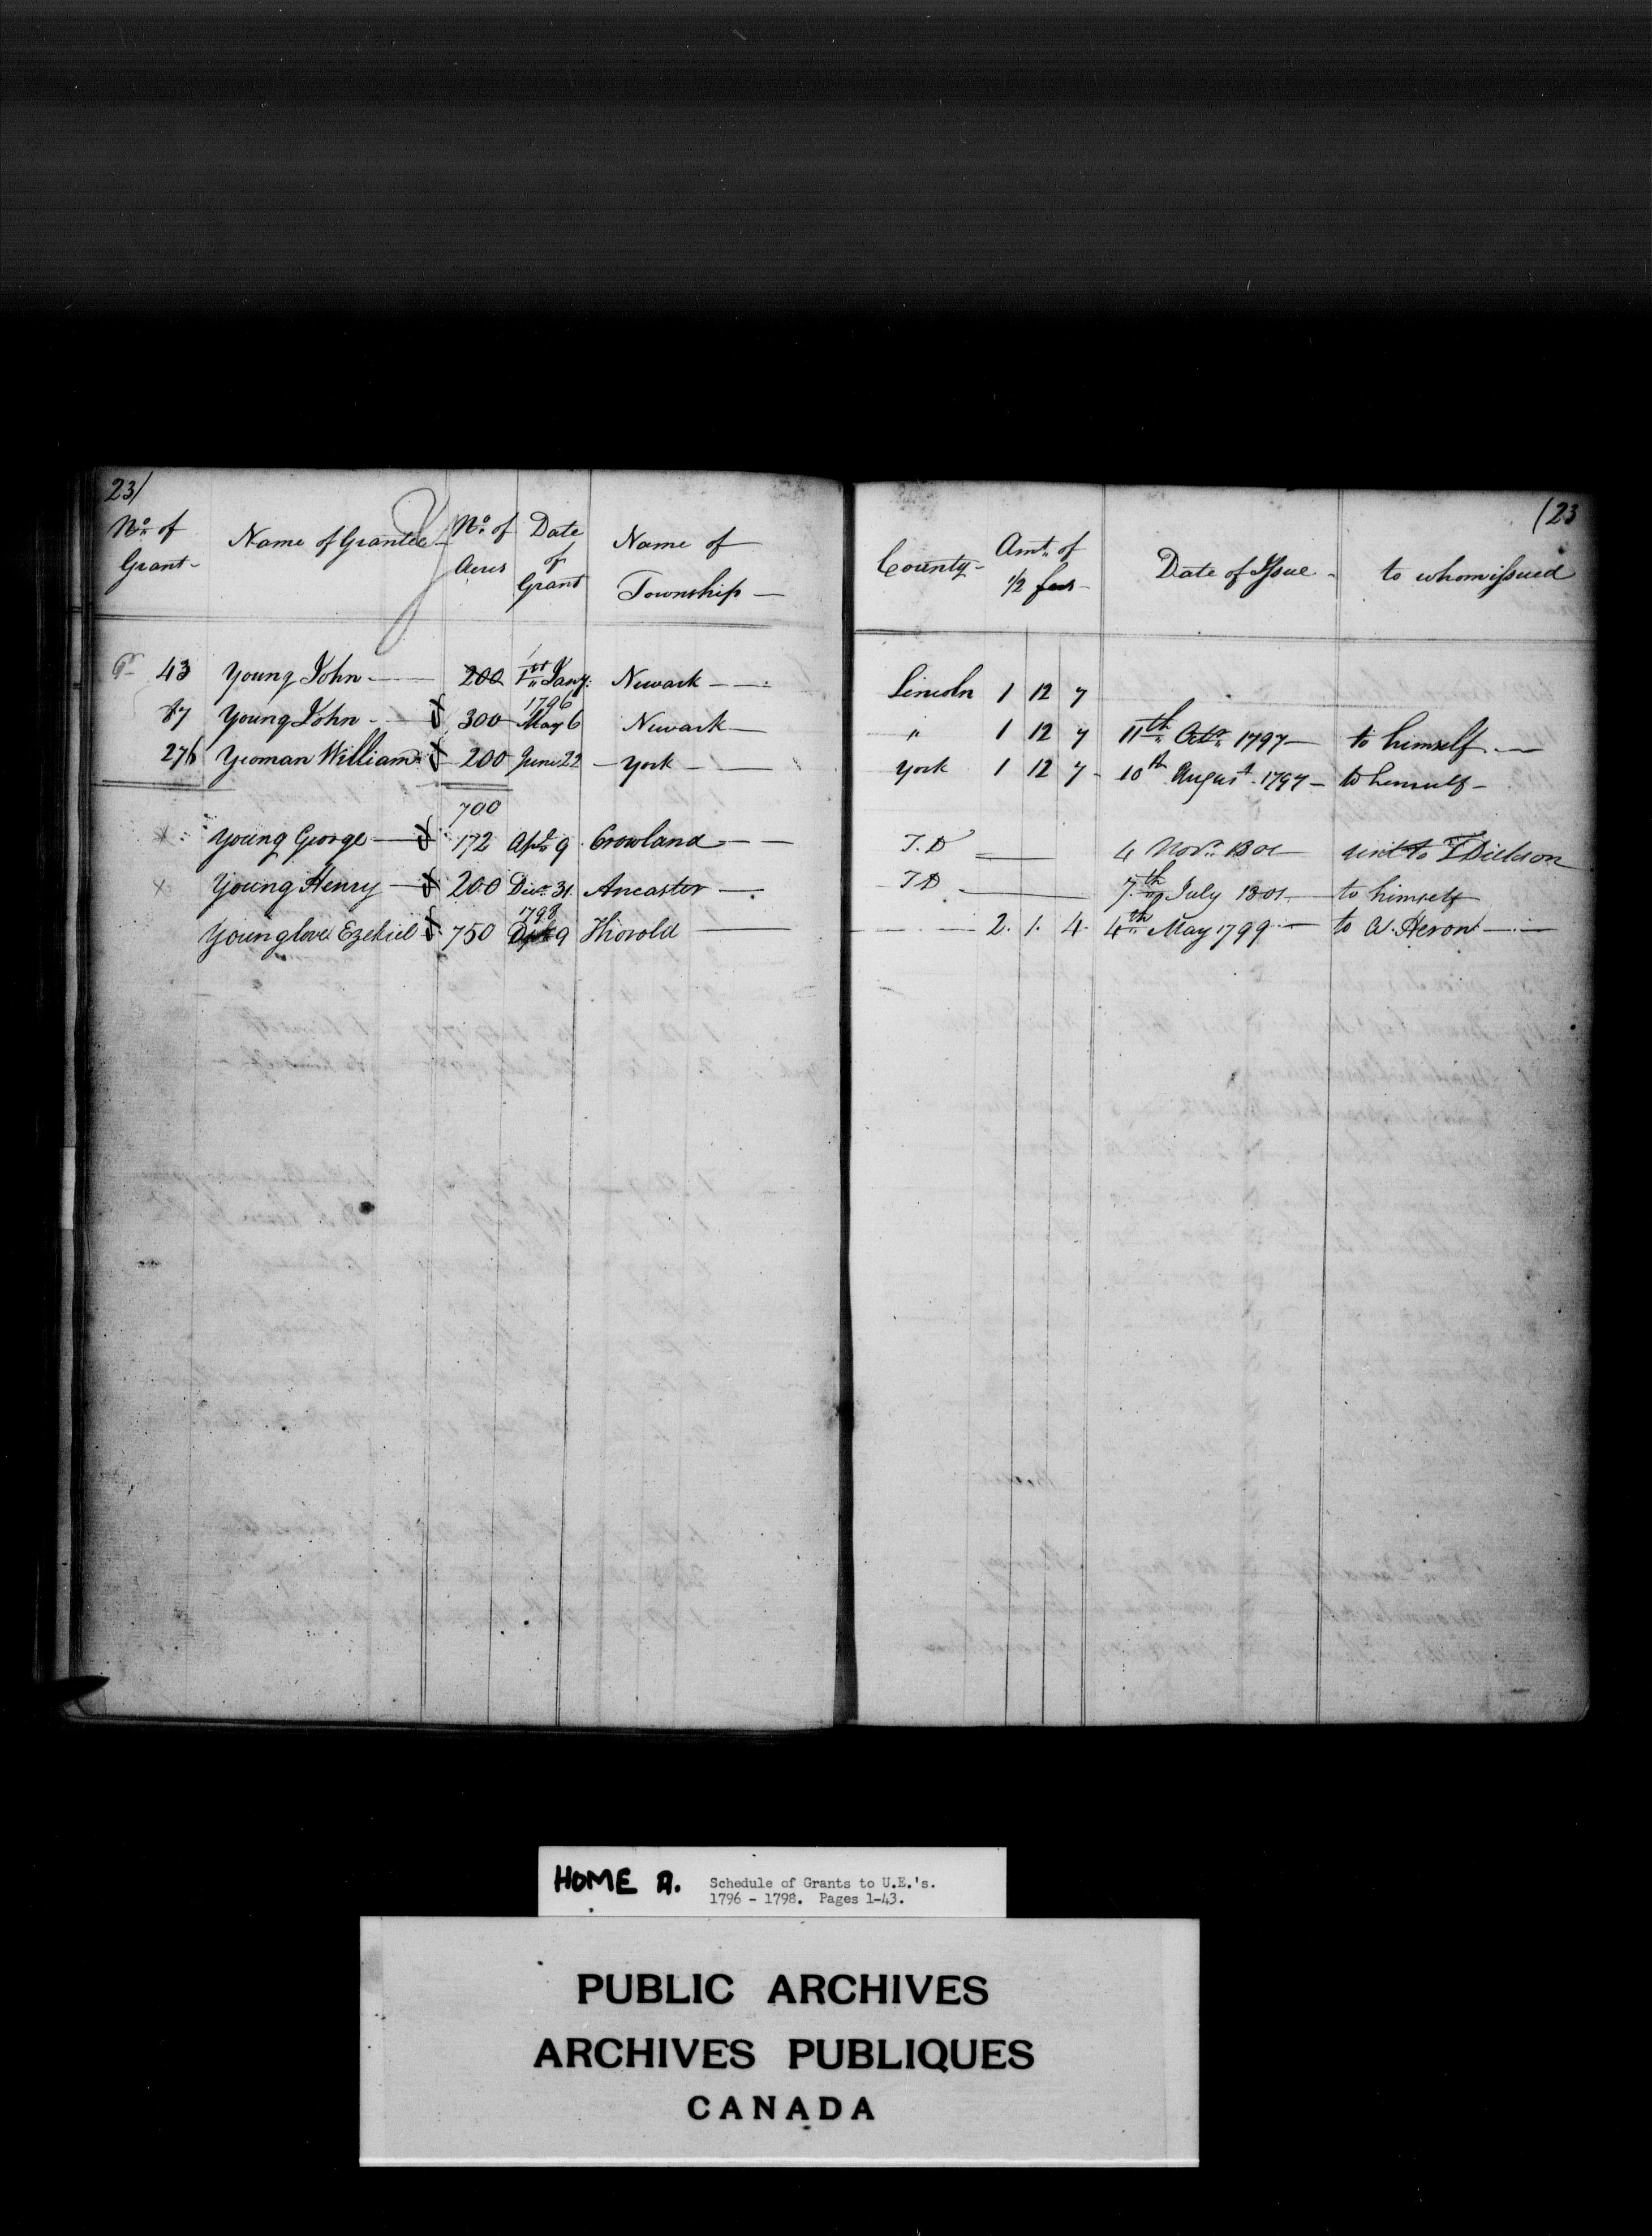 23/
Y
No. of Grant - Name of Grantee No. of Acres Date of Grant Name of Township —
43 Young John - 200 1st Jany. 1796 Newark —
87 Young John - 300 May 6 Newark —
276 Yeoman William 200 June 22 — York —
700
x Young George — 172 Apl. 9 Crowland —
x Young Henry — 200 Decr. 31. Ancaster —
Younglove Ezekiel 750 1798 9 Thorold —
(23
County - Amt. of 1/2 fees - Date of Issue - to whom issued
Lincoln 1 12 7
" 1 12 7 11th Octr. 1797 — to himself —
York 1 12 7 - 10th August. 1797 — to himself -
T.D — 4 Novr. 1801 — sent to T Dickson
T.D — 7th July 1801 — to himself
2. 1. 4. 4th May 1799 — to W. Heron —
HOME D. Schedule of Grants to U.E.'s.
1796 - 1798. Pages 1-43.
PUBLIC ARCHIVES
ARCHIVES PUBLIQUES
CANADA